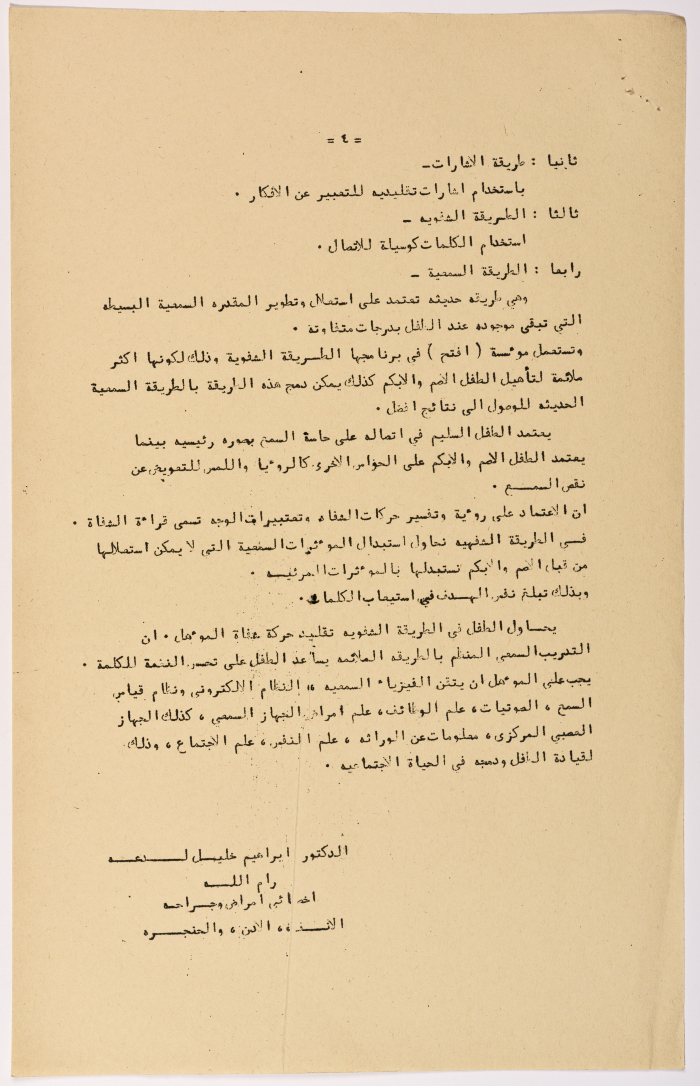 = ٤ =
ثانيا : طريقة الاشارات _
باستخدام اشارات تقليديه للتعبير عن الافكار .
ثالثا : الطريقة الشفويه _
استخدام الكلمات كوسيلة للاتصال .
رابعا : الطريقة السمعية _
وهي طريقه حديثه تعتمد على استغلال وتطوير المقدره السمعية البسيطه
التي تبقى موجوده عند الطفل بدرجات متفاوتة .
وتستعمل موءسسة ( افتح ) في برنامجها الطريقة الشفوية وذلك لكونها اكثر
ملائمة لتأهيل الطفل الاصم والابكم كذلك يمكن دمج هذه الطريقة بالطريقة السمعية
الحديثه للوصول الى نتائج افضل .
يعتمد الطفل السليم في اتصاله على حاسة السمع بصوره رئيسيه بينما
يعتمد الطفل الاصم والابكم على الحواس الاخرى كالروءيا واللمس للتعويض عن
نقص السمع .
ان الاعتماد على روءية وتفسير حركات الشفاه وتعتبيرات الوجه تسمى قراءة الشفاة .
فـي الطريقة الشفهيه نحاول استبدال الموءثرات السمعية التي لا يمكن استغلالها
من قبل الصم والابكم نستبدلها بالموءثرات المرئيه .
وبذلك تبلغ نفس الهدف في استيعاب الكلمات .
يحاول الطفل في الطريقة الشفويه تقليد حركة شفاة الموءهل . ان
التدريب السمعي المنظم بالطريقه الملائمه يساعد الطفل على تحسس النغمة للكلمة .
يجب على الموءهل ان يتقن الفيزياء السمعيه ،، النظام الالكتروني ونظام قياس
السمع ، الصوتيات ، علم الوظائف ، علم امراض الجهاز السمعي ، كذلك الجهاز
العصبي المركزي ، معلومات عن الوراثه ، علم النفس ، علم الاجتماع ، وذلك
لقيادة الطفل ودمجه في الحياة الاجتماعيه .
الدكتور ابراهيم خليل
رام اللــه
اخصائي امراض وجراحه
الانف ، الاذن ، والحنجره